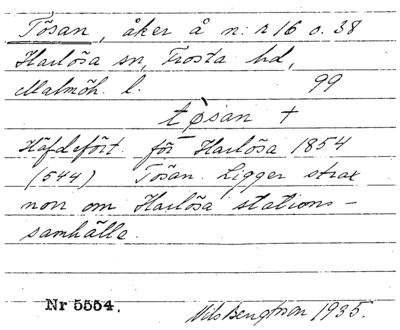 Tösan, åker å n:r 16 o. 38
Harlösa sn, Frosta hd,
Malmöh. l. 99
tø̀san +
Häfdefört. för Harlösa 1854
(544) Tösan. Ligger strax
norr om Harlösa stations-
samhälle.
Nr 5554. Nils Bengtsson 1935.